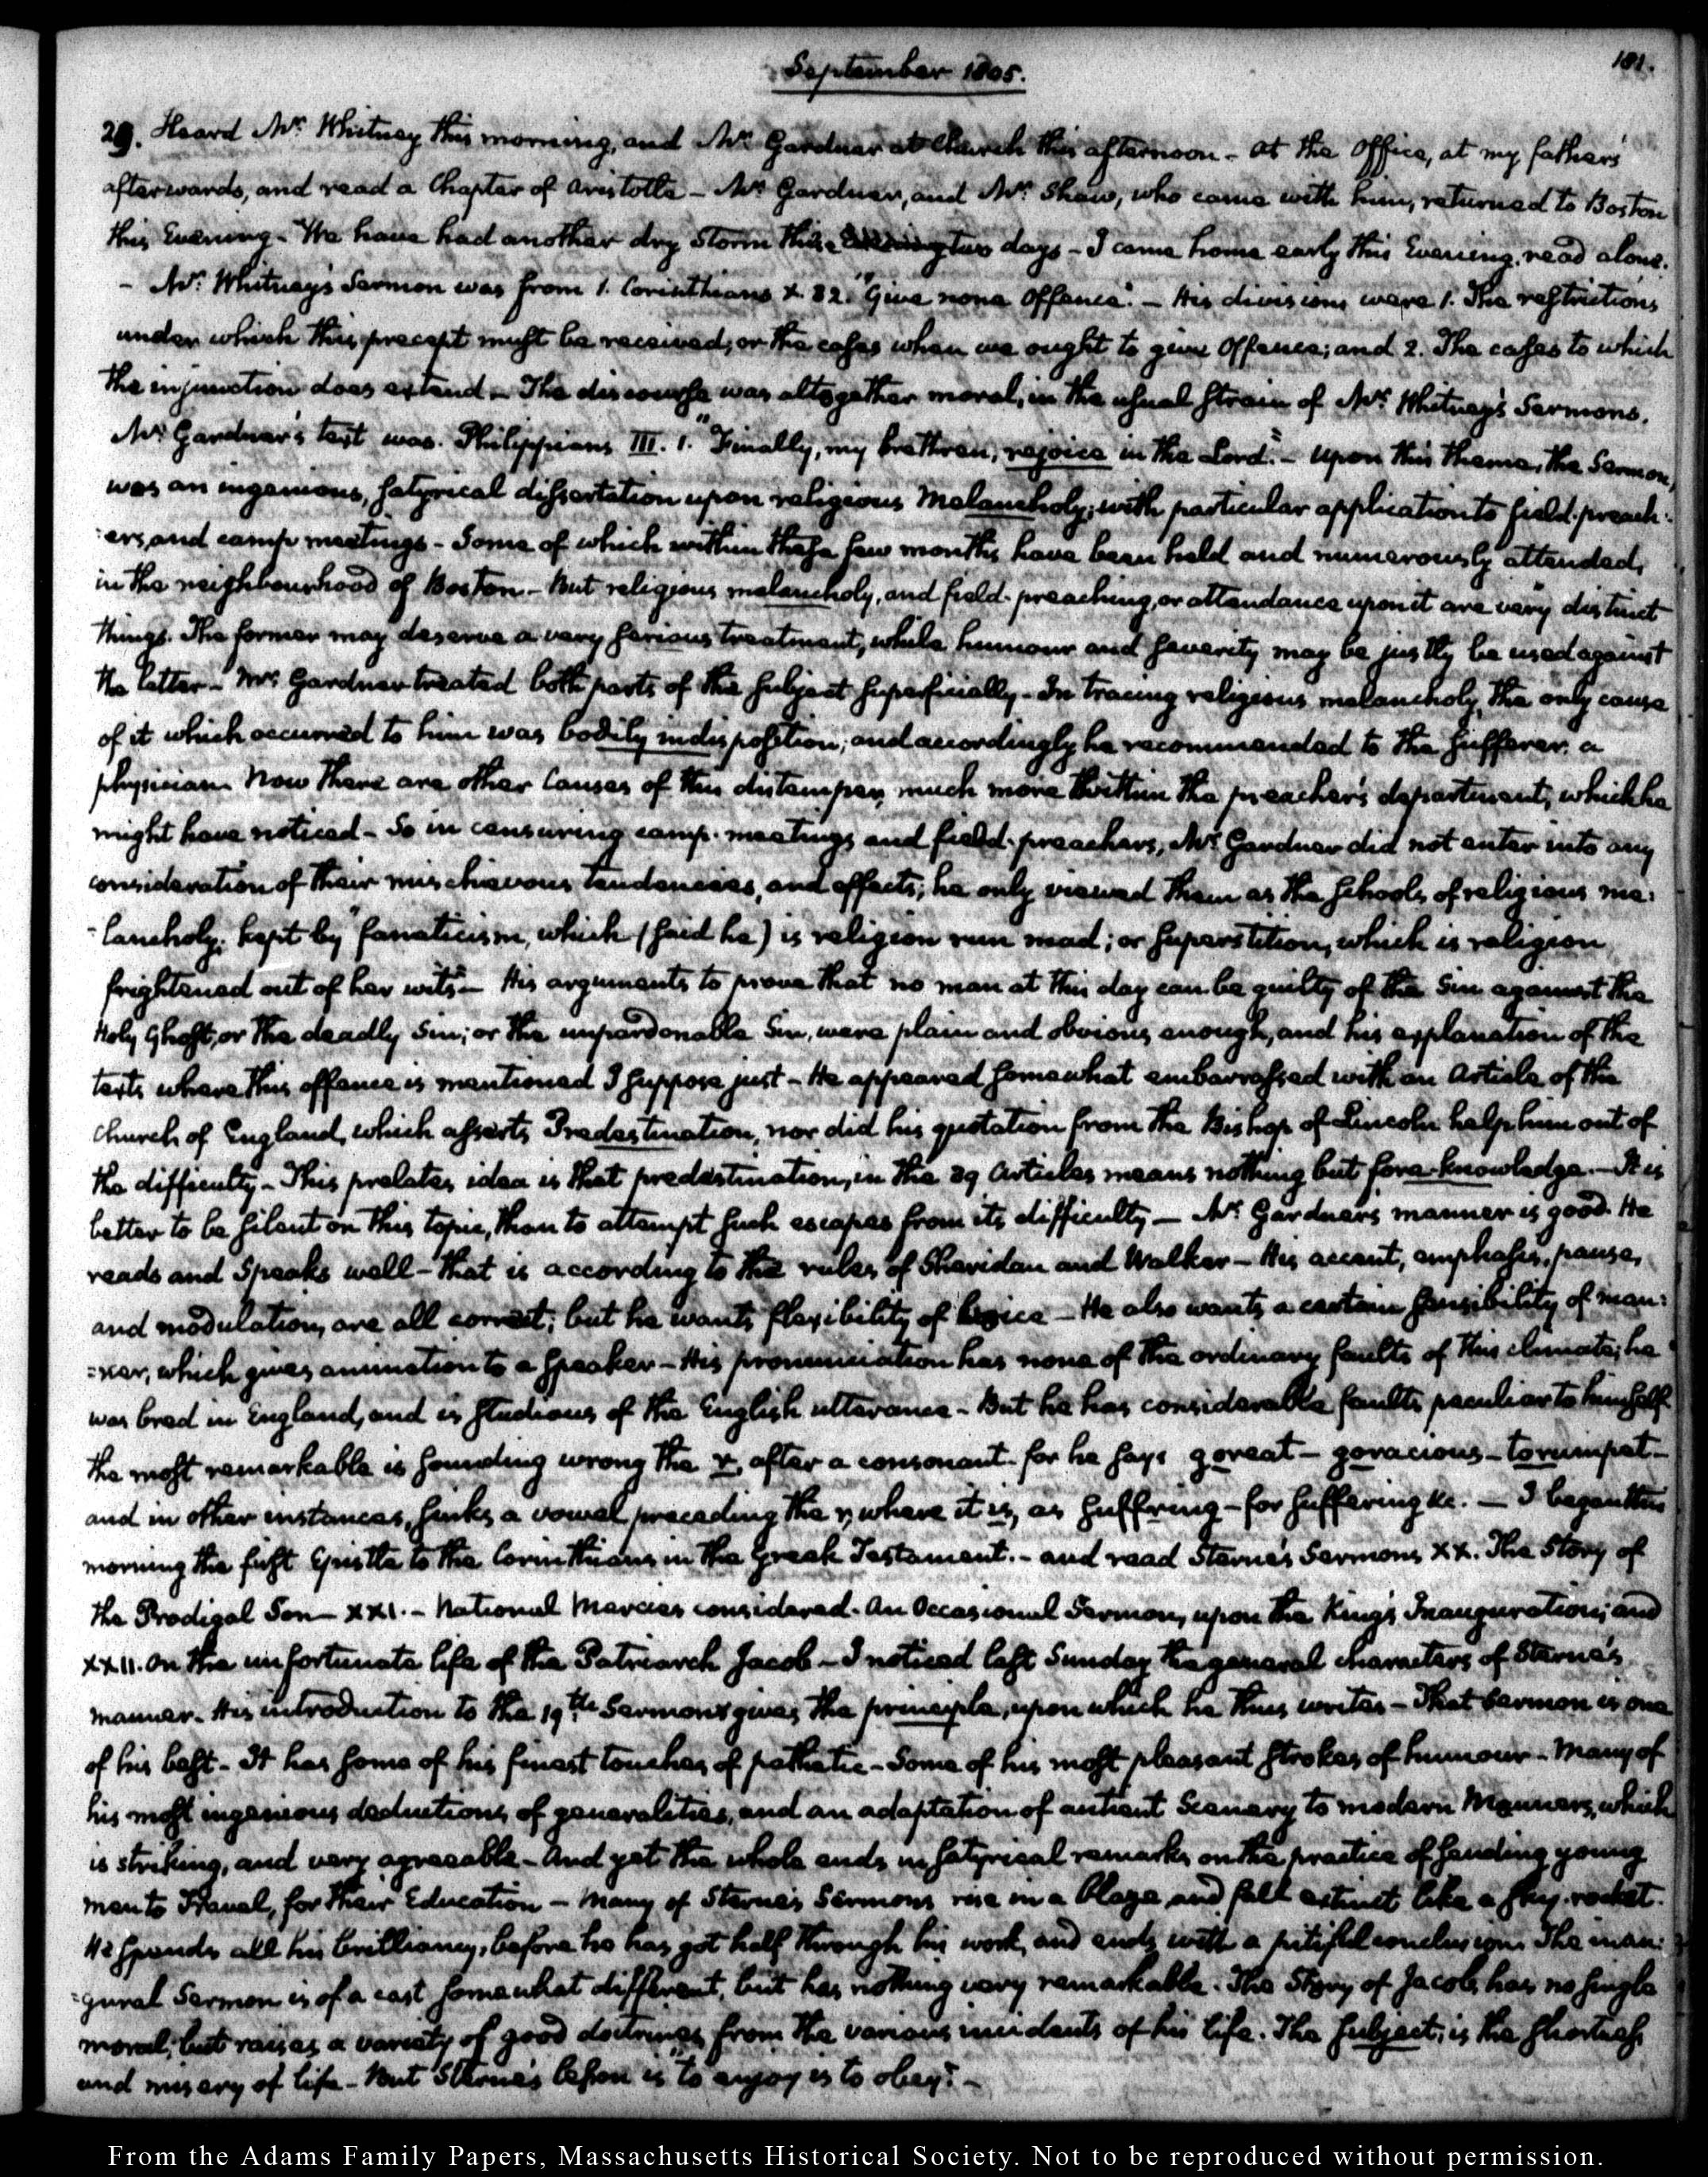 September 1805.
181.
29. Heard Mr. Whitney this morning, and Mr. Gardner at Church this afternoon - at the Office, at my fathers'
afterwards, and read a Chapter of Aristotle - Mr. Gardner, and Mr. Shaw, who came with him, returned to Boston
this Evening - We have had another dry Storm these two days - I came home early this Evening, read alone.
- Mr. Whitney's Sermon was from 1. Corinthians X. 32. "Give none Offence". - His divisions were 1. The restrictions
under which this precept must be received; or the cases when we ought to give Offence; and 2. The cases to which
the injunction does extend - The discourse was altogether moral, in the usual strain of Mr. Whitney's Sermons.
Mr. Gardner's text was. Philippians III. 1. "Finally, my brethren, rejoice in the Lord". - Upon this theme, the Sermon,
was an ingenious, satyrical dissertation upon religious Melancholy; with particular application to field-preach-
:ers, and camp meetings - Some of which within these few months have been held and numerously attended,
in the neighbourhood of Boston - But religious melancholy, and field-preaching, or attendance upon it are very distinct
things. The former may deserve a very serious treatment, while humour and severity may be justly be used against
the latter - Mr. Gardner treated both parts of the subject superficially - In tracing religious melancholy, the only cause
of it which occurred to him was bodily indisposition; and accordingly he recommended to the sufferer, a
physician. Now there are other Causes of this distemper, much more within the preacher's department, which he
might have noticed - So in censuring camp-meetings and field-preachers, Mr. Gardner did not enter into any
consideration of their mischievous tendencies, and effects; he only viewed them as the schools of religious me:
-lancholy; kept by "fanaticism, which (said he) is religion run mad; or superstition, which is religion
frightened out of her wits" - His arguments to prove that no man at this day can be guilty of the Sin against the
Holy Ghost, or the deadly Sin; or the unpardonable Sin, were plain and obvious enough, and his explanation of the
texts where this offence is mentioned I suppose just - He appeared somewhat embarrassed with an Article of the
Church of England, which asserts Predestination, nor did his quotation from the Bishop of Lincoln help him out of
the difficulty - This prelates idea is that predestination, in the 39 Articles means nothing but fore-knowledge. - It is
better to be silent on this topic, than to attempt such escapes from its difficulty - Mr. Gardner's manner is good. He
reads and Speaks well - that is according to the rules of Sheridan and Walker - His accent, emphasis, pause,
and modulation, are all correct; but he wants flexibility of voice - He also wants a certain sensibility of man:
=ner, which gives animation to a Speaker - His pronunciation has none of the ordinary faults of this climate; he
was bred in England, and is studious of the English utterance - But he has considerable faults peculiar to himself
the most remarkable is sounding wrong the r, after a consonant - for he says goreat - goracious - torumpet -
and in other instances, sinks a vowel preceding the r, where it is, as suffring - for suffering &c. - I began this
morning the first Epistle to the Corinthians in the Greek Testament. - and read Sterne's Sermons XX. The Story of
the Prodigal Son - XXI. - National Mercies considered. An Occasional Sermon, upon the King's Inauguration; and
XXII. On the unfortunate life of the Patriarch Jacob - I noticed last Sunday the general characters of Sterne's
manner - His introduction to the 19th Sermon gives the principle, upon which he thus writes - That Sermon is one
of his best - It has some of his finest touches of pathetic - Some of his most pleasant strokes of humour - Many of
his most ingenious deductions of generalities, and an adaptation of antient Scenery to modern Manners, which
is striking, and very agreeable - And yet the whole ends in satyrical remarks on the practice of sending young
men to Travel, for their Education - Many of Sterne's Sermons rise in a blaze and fall extinct like a sky-rocket.
He spends all his brilliancy, before he has got half through his work, and ends with a pitiful conclusion. The inau:
=gural Sermon is of a cast somewhat different, but has nothing very remarkable. The Story of Jacob, has no single
moral; but raises a variety of good doctrines from the various incidents of his life. The subject, is the shortness
and misery of life - But Sterne's lesson is "to enjoy is to obey". -
From the Adams Family Papers, Massachusetts Historical Society. Not to be reproduced without permission.